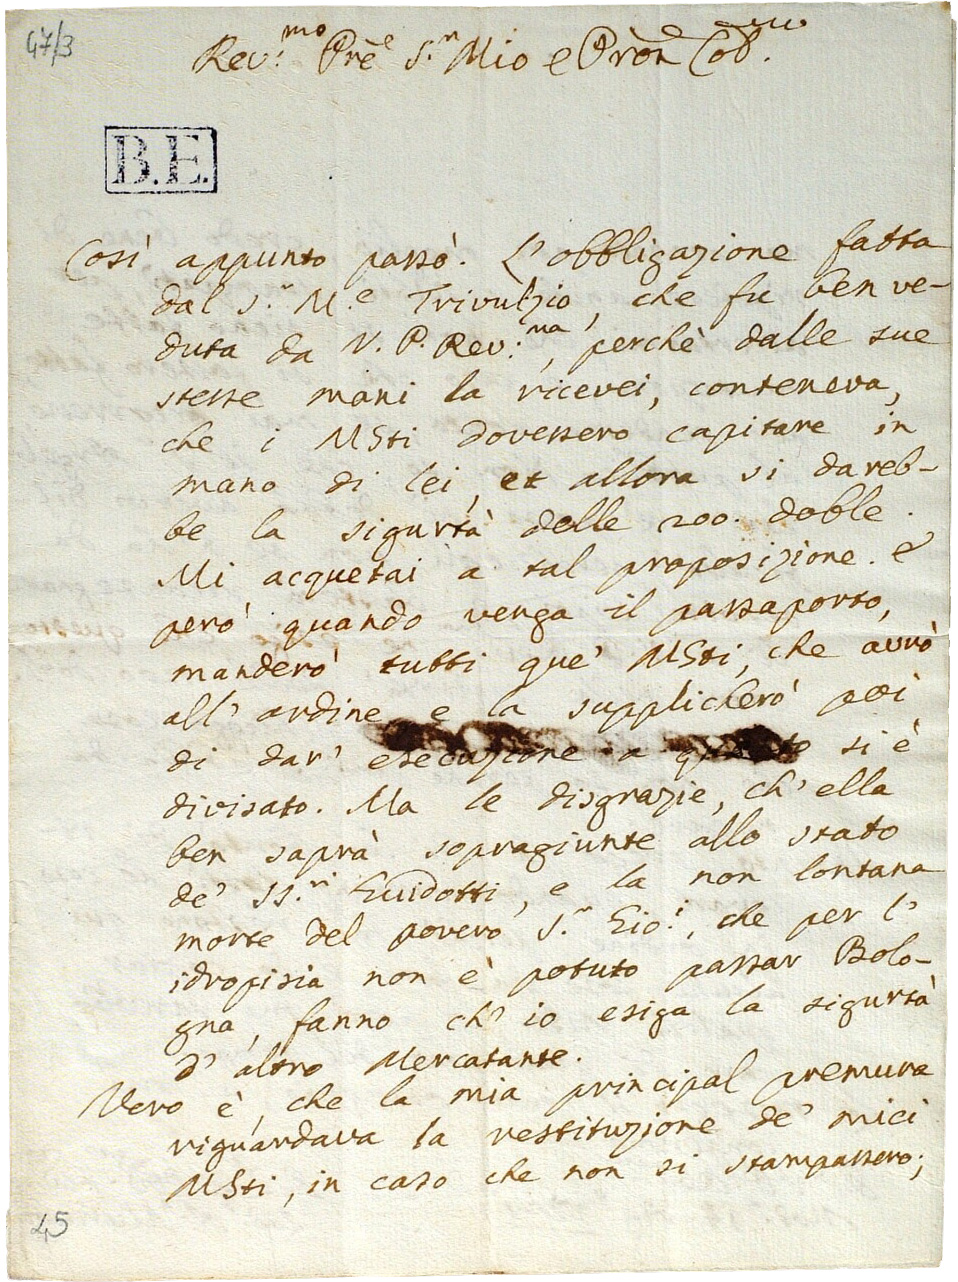 47/3
Rev.mo Prē Sr. Mio e Pròn Cob.mo
B.E.
Così appunto passò. L'obbligazione fatta
dal Sr. M.e Trivulzio, che fu ben ve-
duta da V. P. Rev.ma, perchè dalle sue
stesse mani la ricevei, conteneva,
che i MSti dovessero capitare in
mano di lei, et allora si dareb-
be la sigurtà delle 200. doble.
Mi acquetai a tal proposizione. E
però quando venga il passaporto,
manderò tutti que' MSti, che avrò
all'ordine e la supplicherò poi
di dar' esecuzione a quanto si è
divisato. Ma le disgrazie, ch'ella
ben saprà sopragiunte allo stato
de' SS.ri Guidotti, e la non lontana
morte del povero Sr. Gio., che per l'
idropisia non è potuto passar Bolo-
gna, fanno ch'io esiga la sigurtà
d'altro Mercatante.
Vero è, che la mia principal premura
riguardava la restituzione de' miei
MSti, in caso che non si stampassero;
45